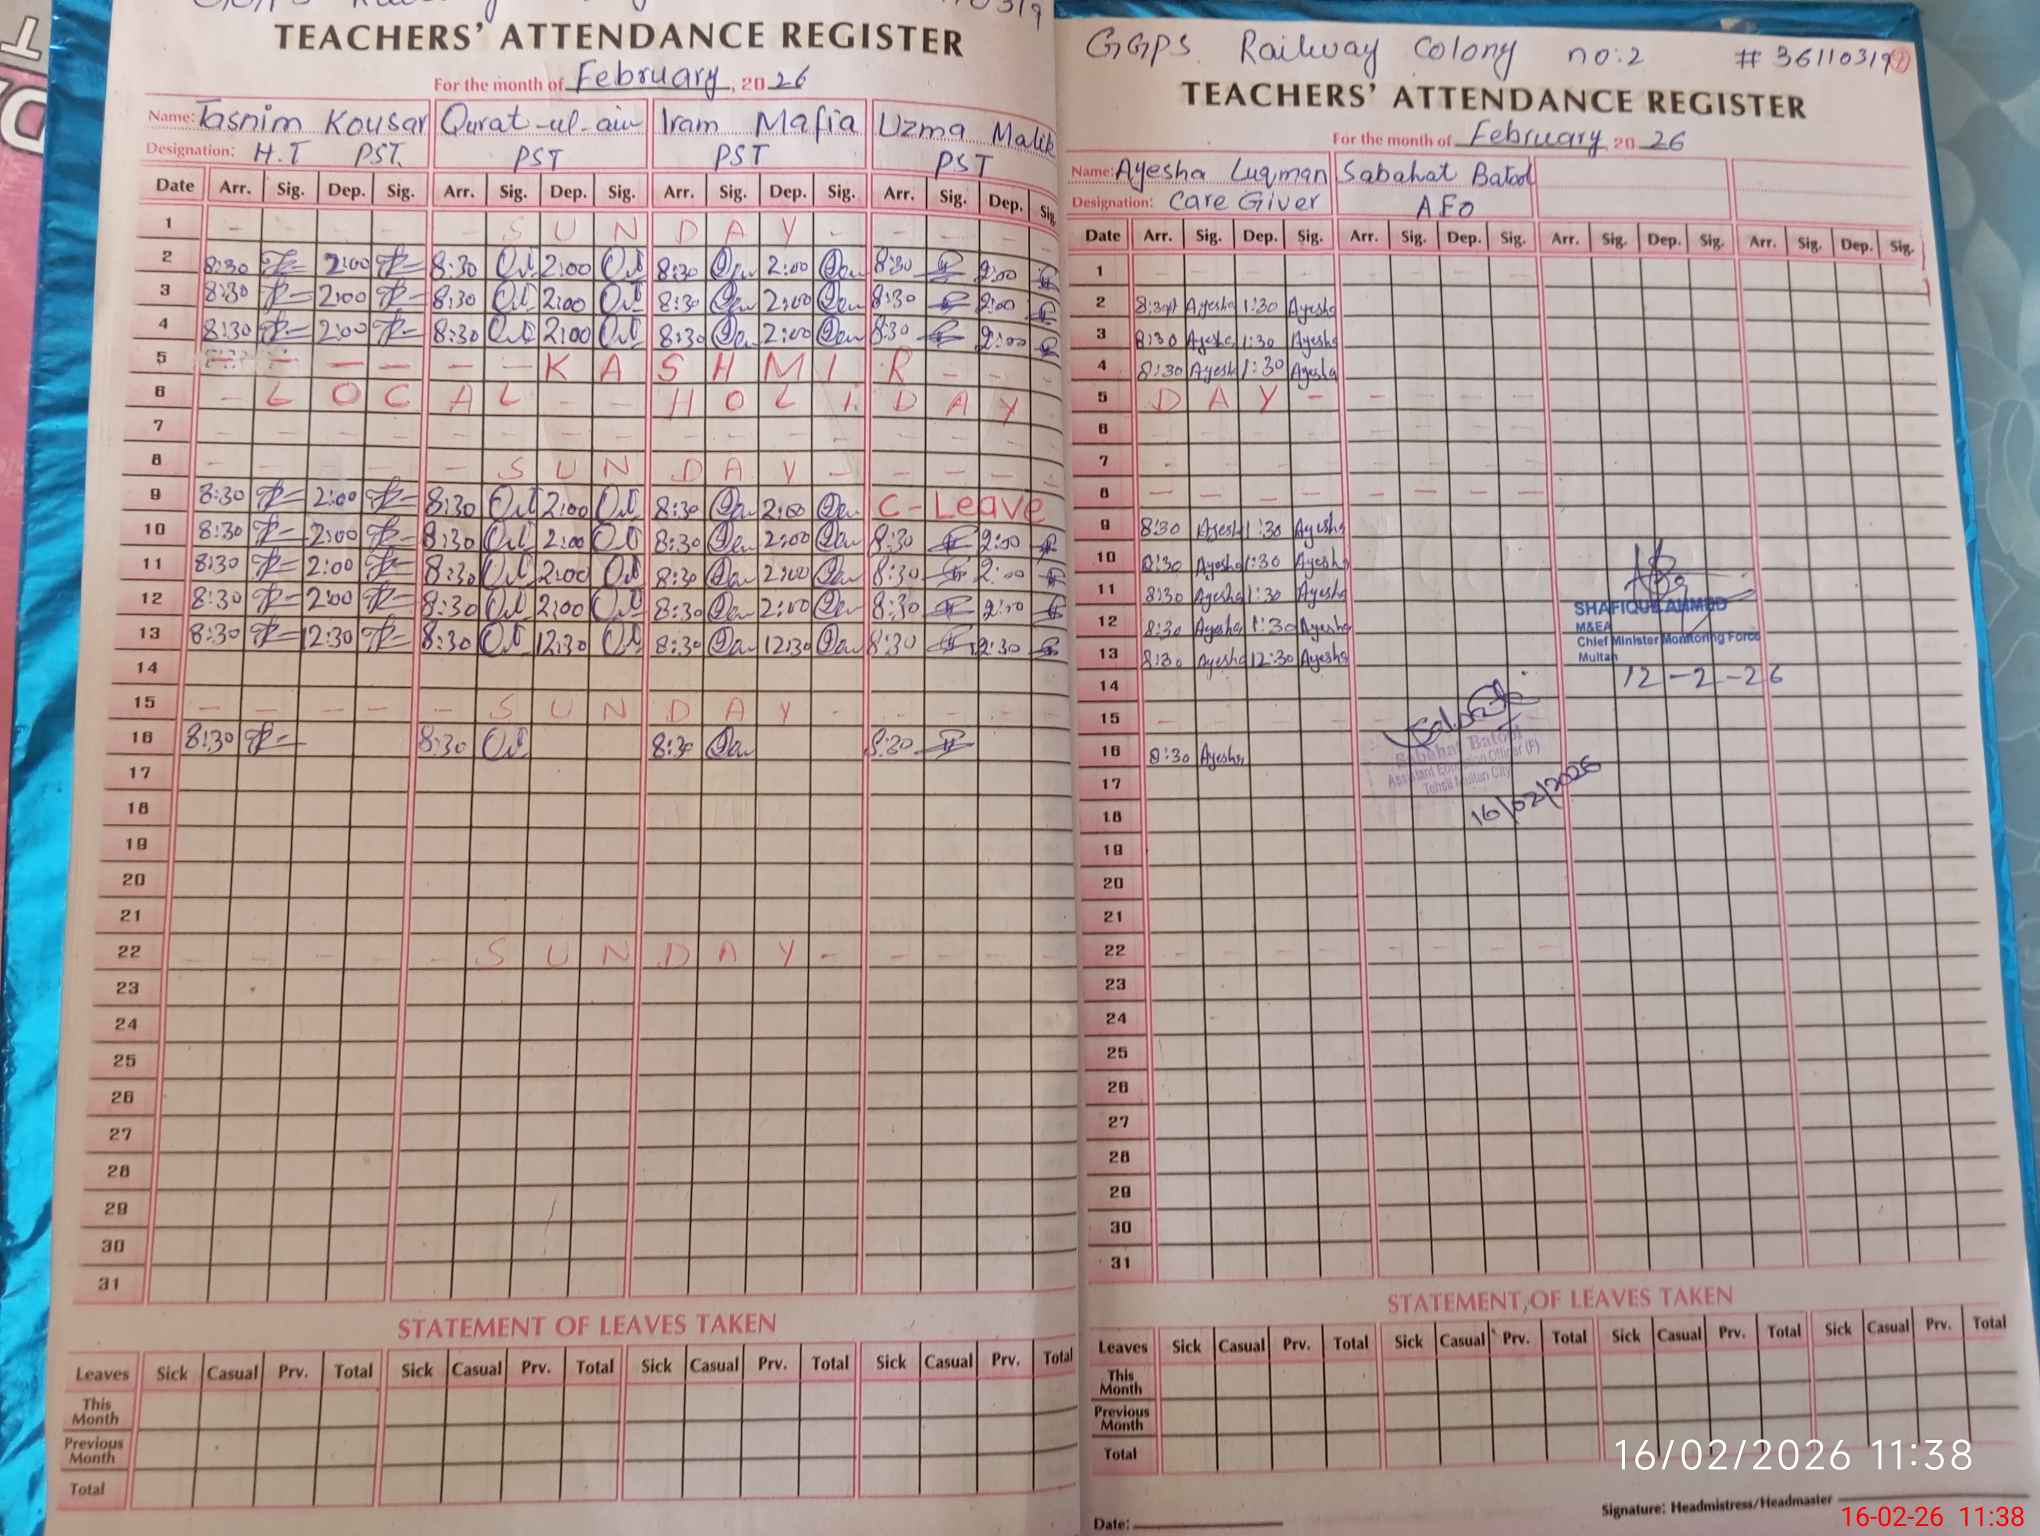 TEACHERS' ATTENDANCE REGISTER
For the month of February, 2026
Name: Tasnim Kousar Qurat-ul-ain Iram Mafia Uzma Malik
Designation: H.T PST. PST PST PST
Date Arr. Sig. Dep. Sig. Arr. Sig. Dep. Sig. Arr. Sig. Dep. Sig. Arr. Sig. Dep. Sig.
1 - - - - - S U N D A Y - - - - -
2 8:30 2:00 8:30 2:00 8:30 2:00 8:30 2:00
3 8:30 2:00 8:30 2:00 8:30 2:00 8:30 2:00
4 8:30 2:00 8:30 2:00 8:30 2:00 8:30 2:00
5 - - - - - - K A S H M I R - - -
6 - L O C A L - - H O L I D A Y
7 - - - - - - - - - - - - - - -
8 - - - - - S U N D A Y - - - - -
9 8:30 2:00 8:30 2:00 8:30 2:00 C-Leave
10 8:30 2:00 8:30 2:00 8:30 2:00 8:30 2:00
11 8:30 2:00 8:30 2:00 8:30 2:00 8:30 2:00
12 8:30 2:00 8:30 2:00 8:30 2:00 8:30 2:00
13 8:30 12:30 8:30 12:30 8:30 12:30 8:30 12:30
14
15 - - - - - S U N D A Y - - - - -
16 8:30 8:30 8:30 8:30
17
18
19
20
21
22 - - - - - S U N D A Y - - - - -
23
24
25
26
27
28
29
30
31
STATEMENT OF LEAVES TAKEN
Leaves Sick Casual Prv. Total Sick Casual Prv. Total Sick Casual Prv. Total Sick Casual Prv. Total
This Month
Previous Month
Total
GGPS Railway Colony no:2 # 36110319
TEACHERS' ATTENDANCE REGISTER
For the month of February 2026
Name: Ayesha Luqman Sabahat Batool
Designation: Care Giver AEO
Date Arr. Sig. Dep. Sig. Arr. Sig. Dep. Sig. Arr. Sig. Dep. Sig. Arr. Sig. Dep. Sig.
1 - - - - - - - -
2 8:30 Ayesha 1:30 Ayesha
3 8:30 Ayesha 1:30 Ayesha
4 8:30 Ayesha 1:30 Ayesha
5 D A Y - - - - -
6 - - - - - - - -
7 - - - - - - - -
8 - - - - - - - -
9 8:30 Ayesha 1:30 Ayesha
10 8:30 Ayesha 1:30 Ayesha
11 8:30 Ayesha 1:30 Ayesha
12 8:30 Ayesha 1:30 Ayesha
13 8:30 Ayesha 12:30 Ayesha
14
15 - - - -
16 8:30 Ayesha
17
18
19
20
21
22 - - - - - - - -
23
24
25
26
27
28
29
30
31
SHAFIQUE AHMED
M&EA
Chief Minister Monitoring Force
Multan
12-2-26
Sabahat Batool
Assistant Education Officer (F)
Tehsil Multan City
16/02/2026
STATEMENT OF LEAVES TAKEN
Leaves Sick Casual Prv. Total Sick Casual Prv. Total Sick Casual Prv. Total Sick Casual Prv. Total
This Month
Previous Month
Total
16/02/2026 11:38
Signature: Headmistress/Headmaster
Date:
16-02-26 11:38